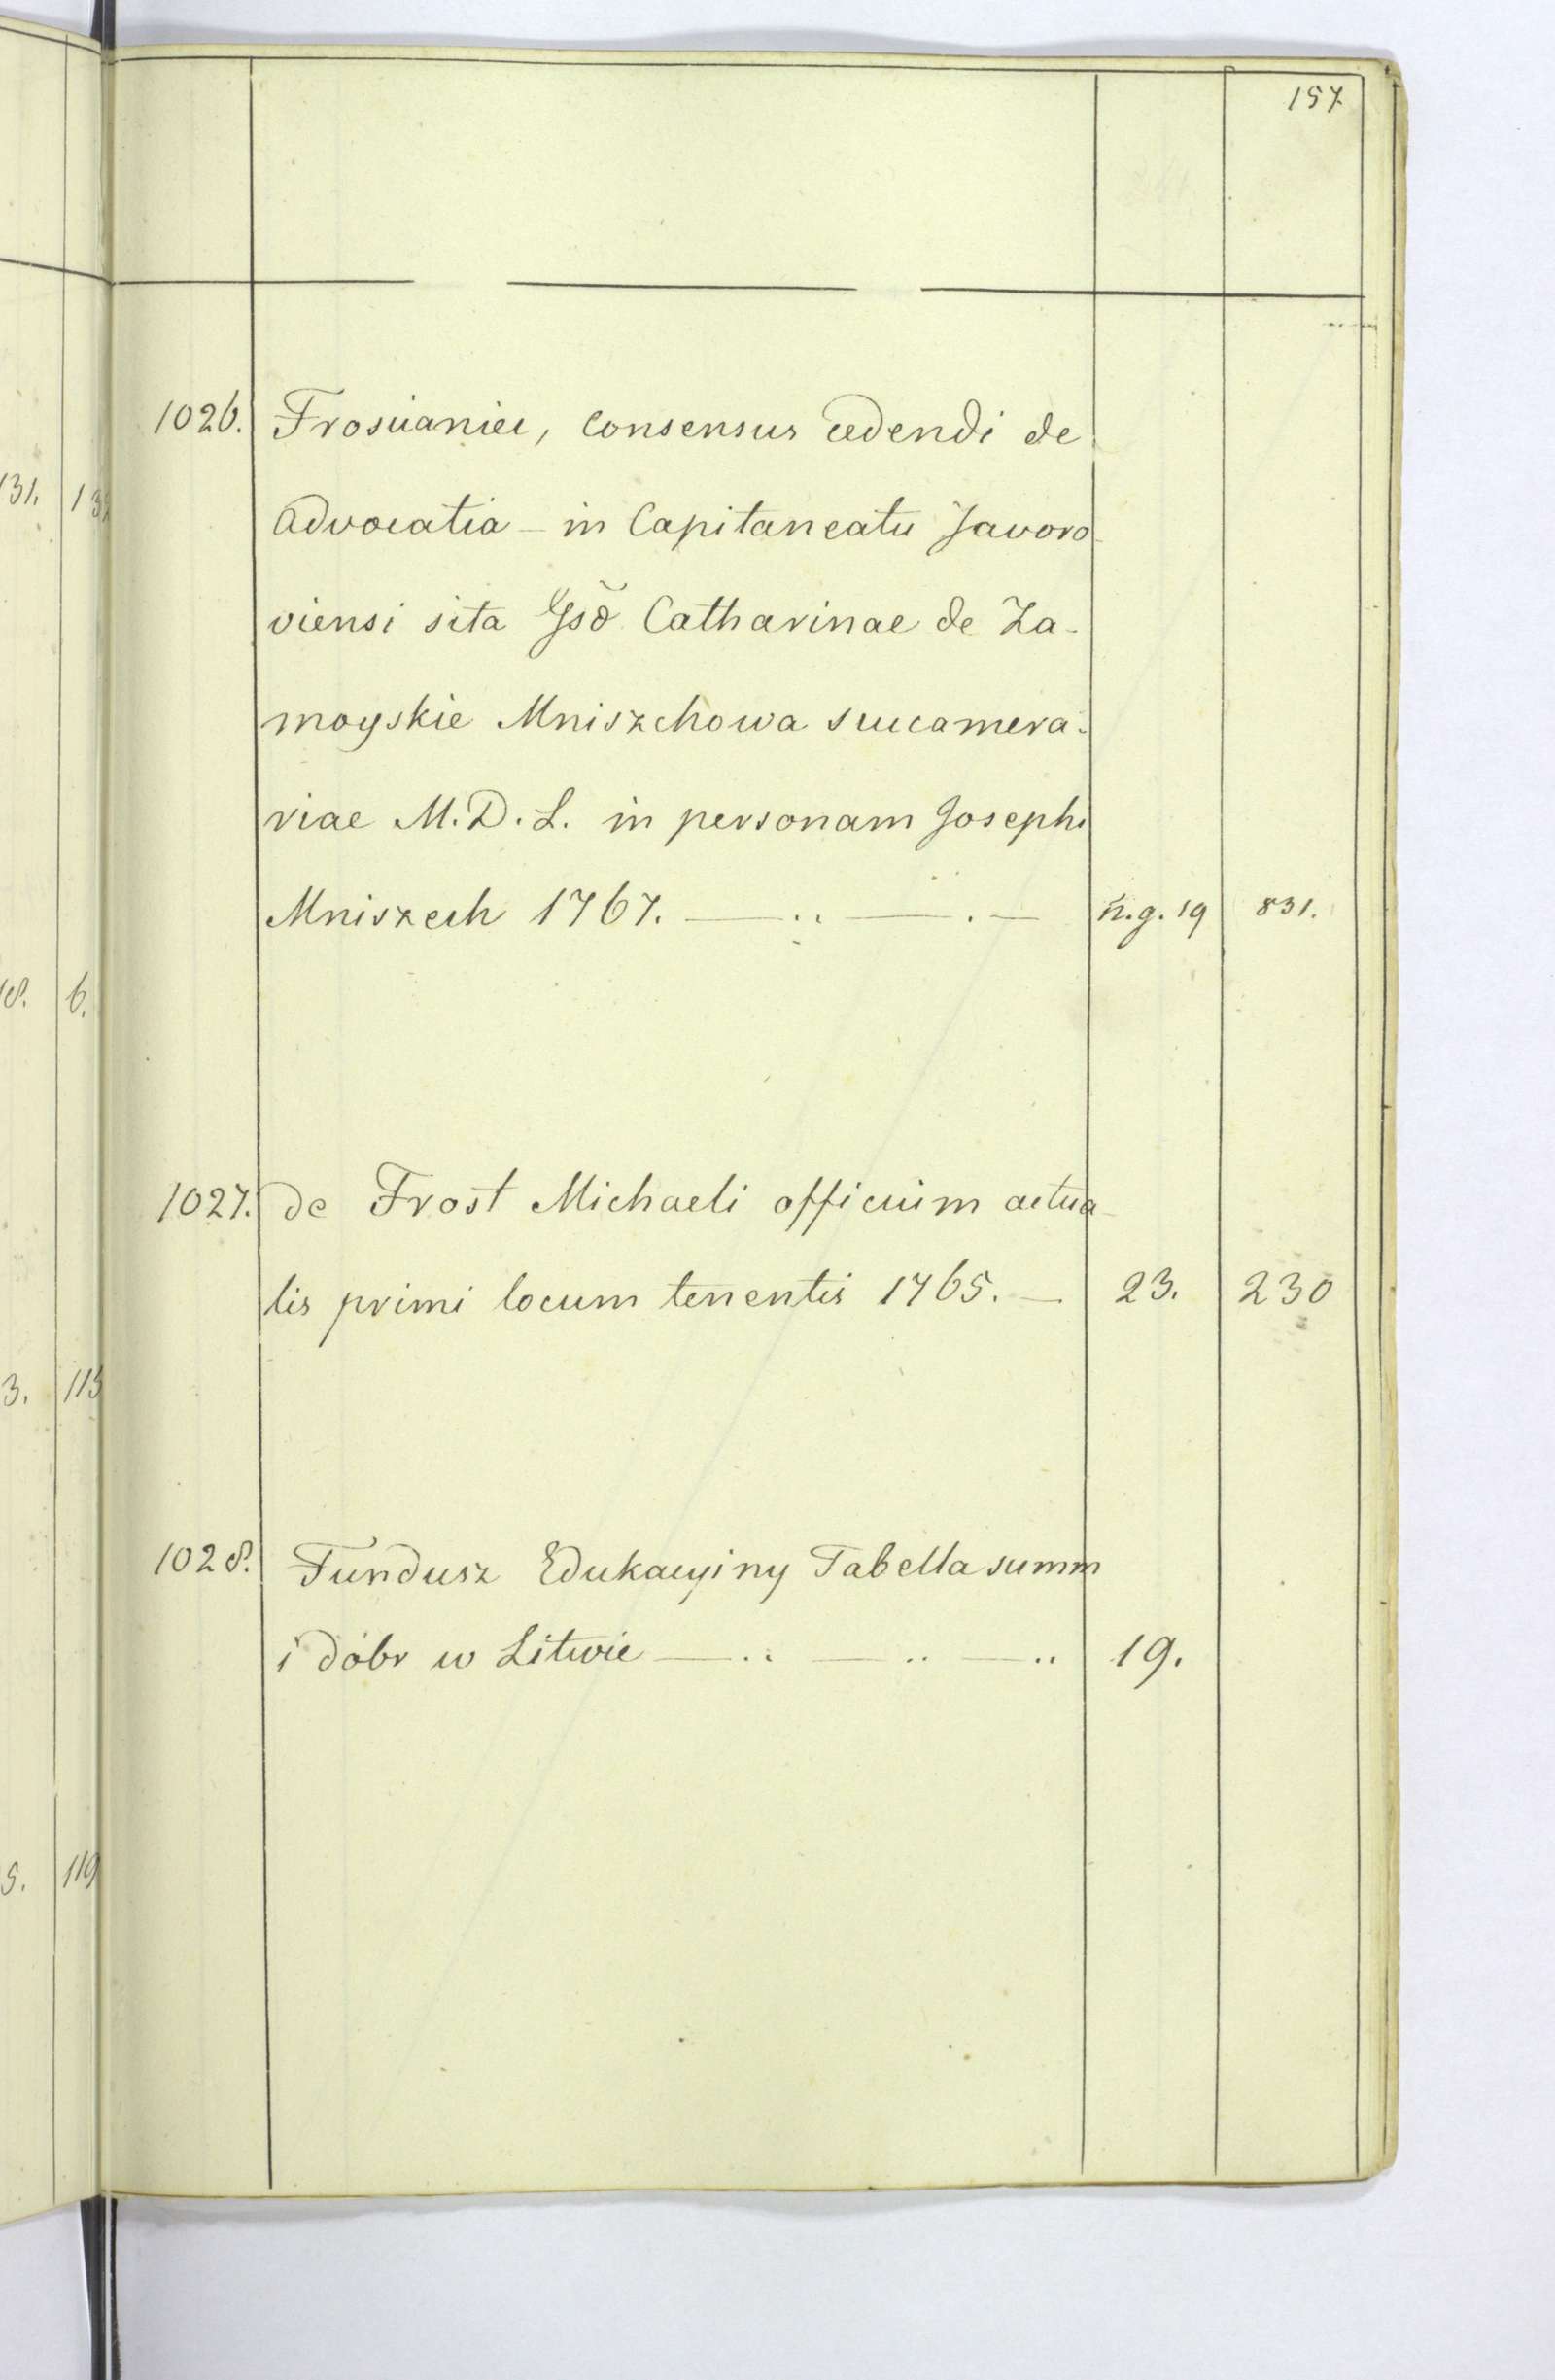 157
1026. Frosciamec, consensus cedendi de
advocatia - in Capitaneatu Javoro-
viensi sita Gsd Catharinae de Za-
moyskie Mniszchowa succamera-
riae M.D.L. in personam Josephi
Mniszech 1767. n.g. 19 831.
1027. de Frost Michaeli officium actua-
lis primi locum tenentis 1765. 23. 230
1028. Fundusz Edukacyiny Tabella summ
i dóbr w Litwie 19.
131. 13
18. 6.
3. 113
5. 119